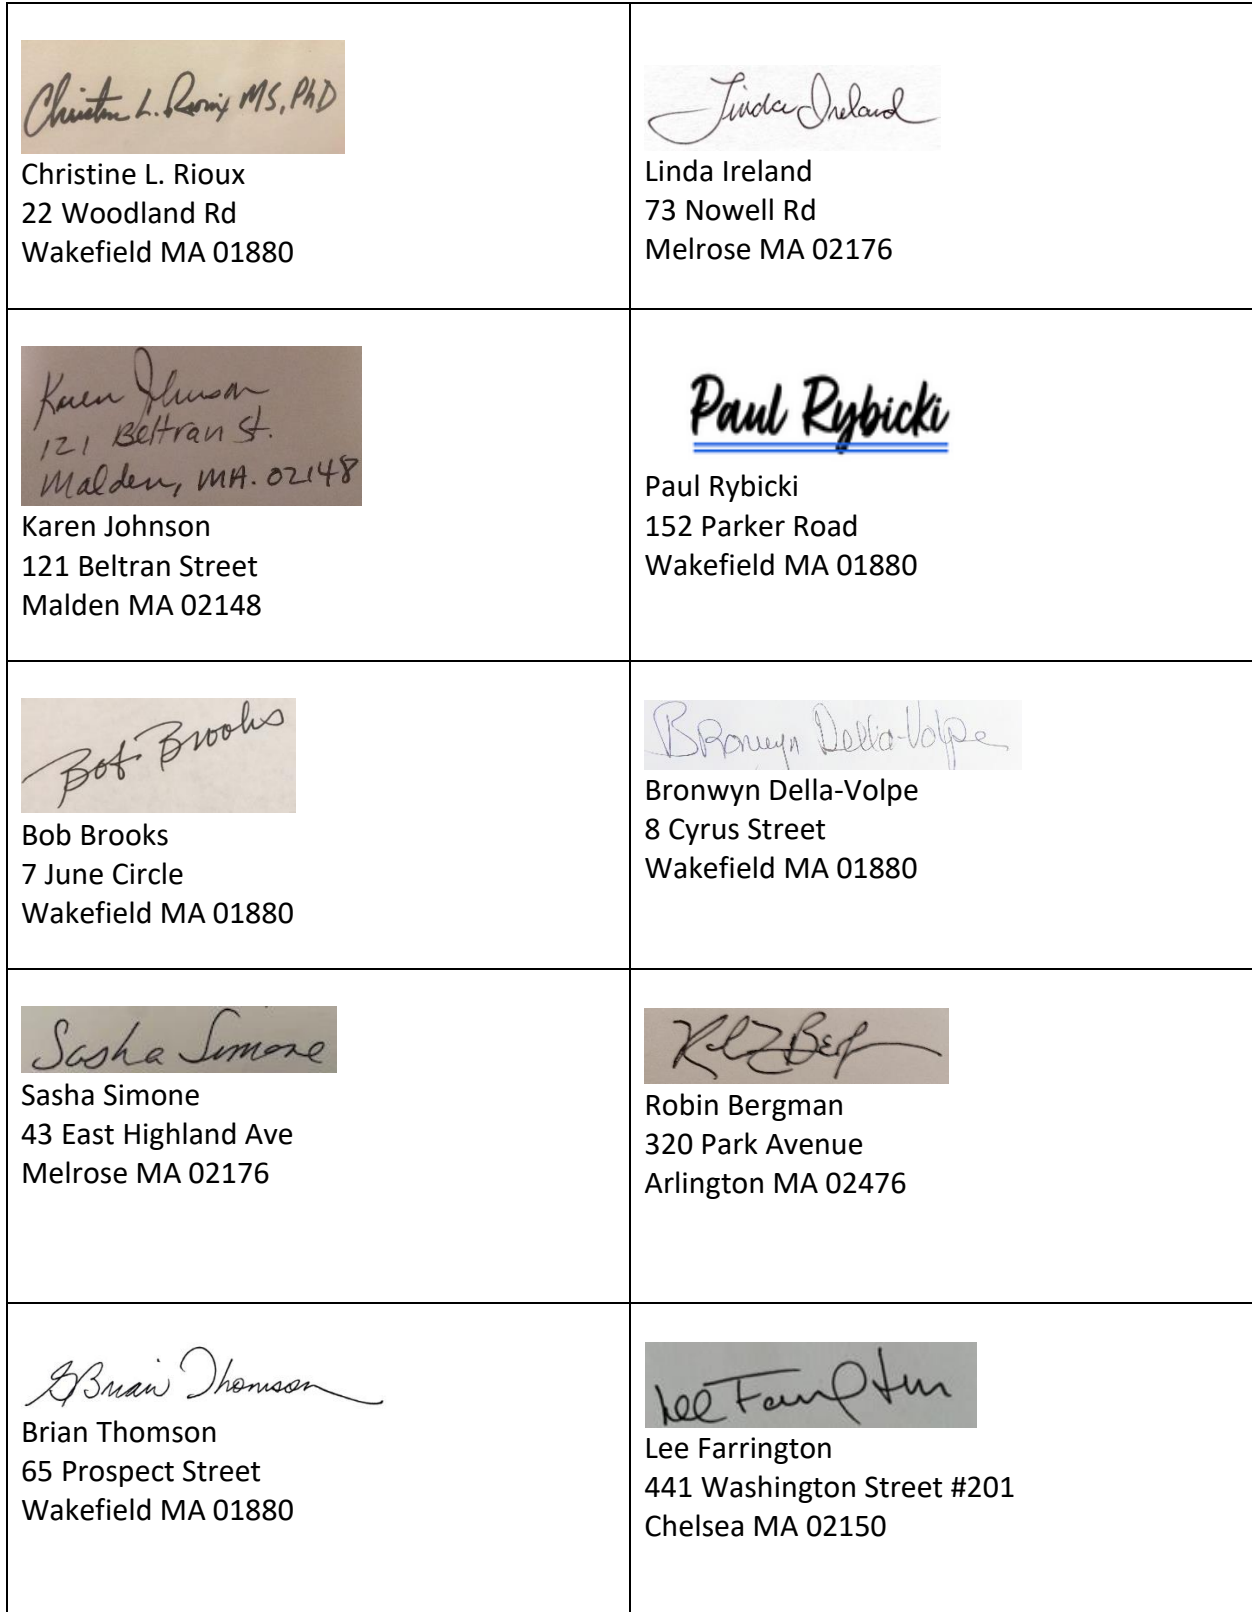 Christine L. Rioux MS, PhD
Christine L. Rioux
22 Woodland Rd
Wakefield MA 01880
Linda Ireland
Linda Ireland
73 Nowell Rd
Melrose MA 02176
Karen Johnson
121 Beltran St.
Malden, MA. 02148
Karen Johnson
121 Beltran Street
Malden MA 02148
Paul Rybicki
Paul Rybicki
152 Parker Road
Wakefield MA 01880
Bob Brooks
Bob Brooks
7 June Circle
Wakefield MA 01880
Bronwyn Della-Volpe
Bronwyn Della-Volpe
8 Cyrus Street
Wakefield MA 01880
Sasha Simone
Sasha Simone
43 East Highland Ave
Melrose MA 02176
Robin Bergman
320 Park Avenue
Arlington MA 02476
Brian Thomson
Brian Thomson
65 Prospect Street
Wakefield MA 01880
Lee Farrington
Lee Farrington
441 Washington Street #201
Chelsea MA 02150